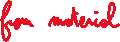 from material